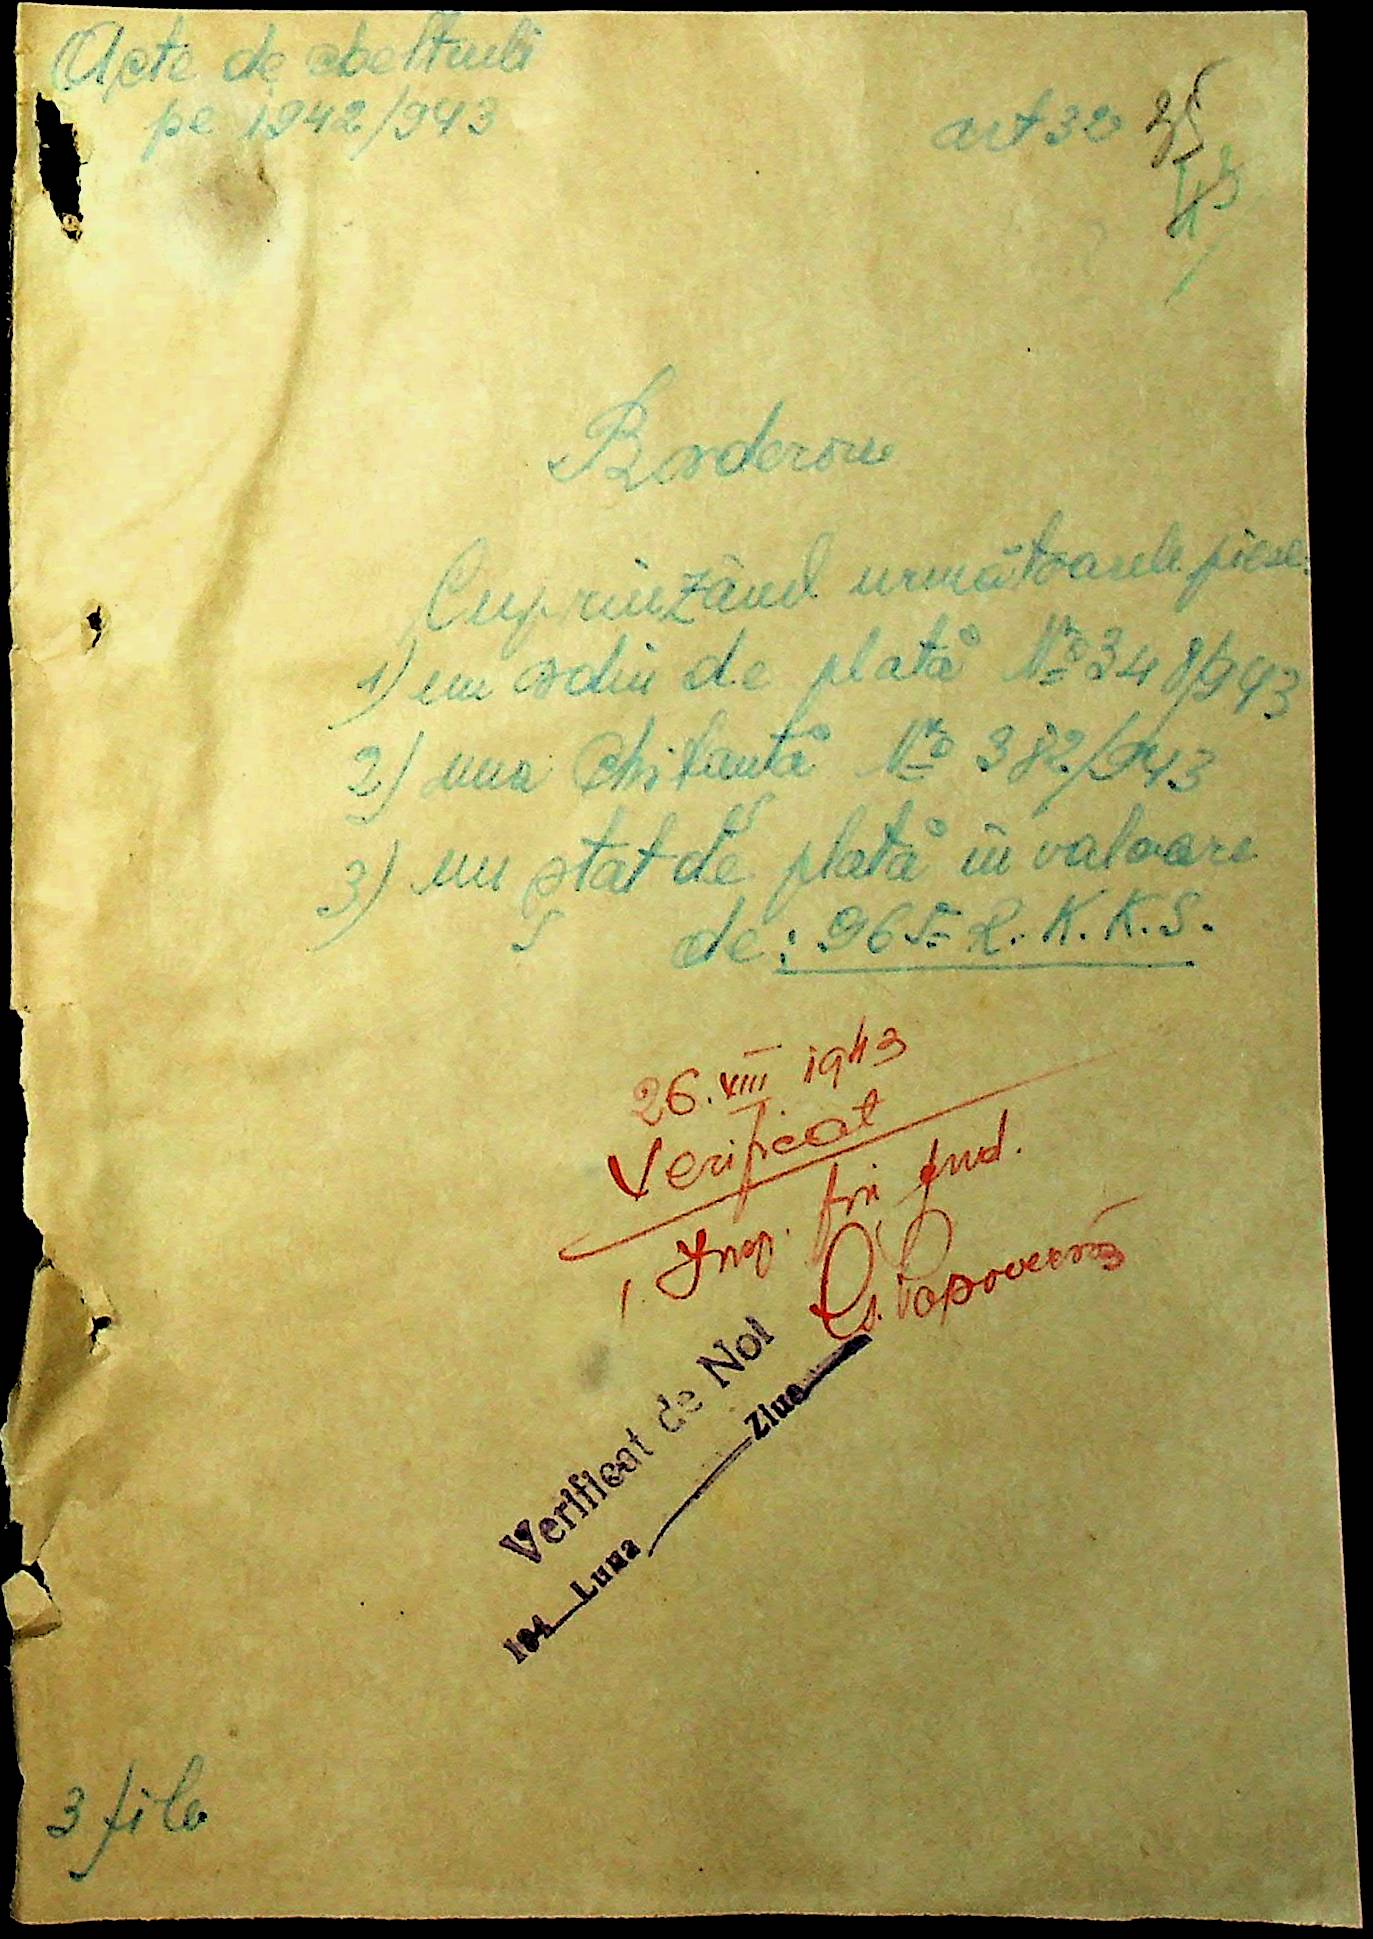 Acte de cheltueli
pe 1942/943
art 32
Borderou
Cuprinzând următoarele piese:
1) un ordin de plată № 348/943
2) una chitanță № 382/943
3) un ștat de plată în valoare
de: 965= R.K.K.S.
26.VIII 1943
Verificat
Insp. fin
G. Popoveanu
Verificat de Noi
194 Luna Ziua
3 file